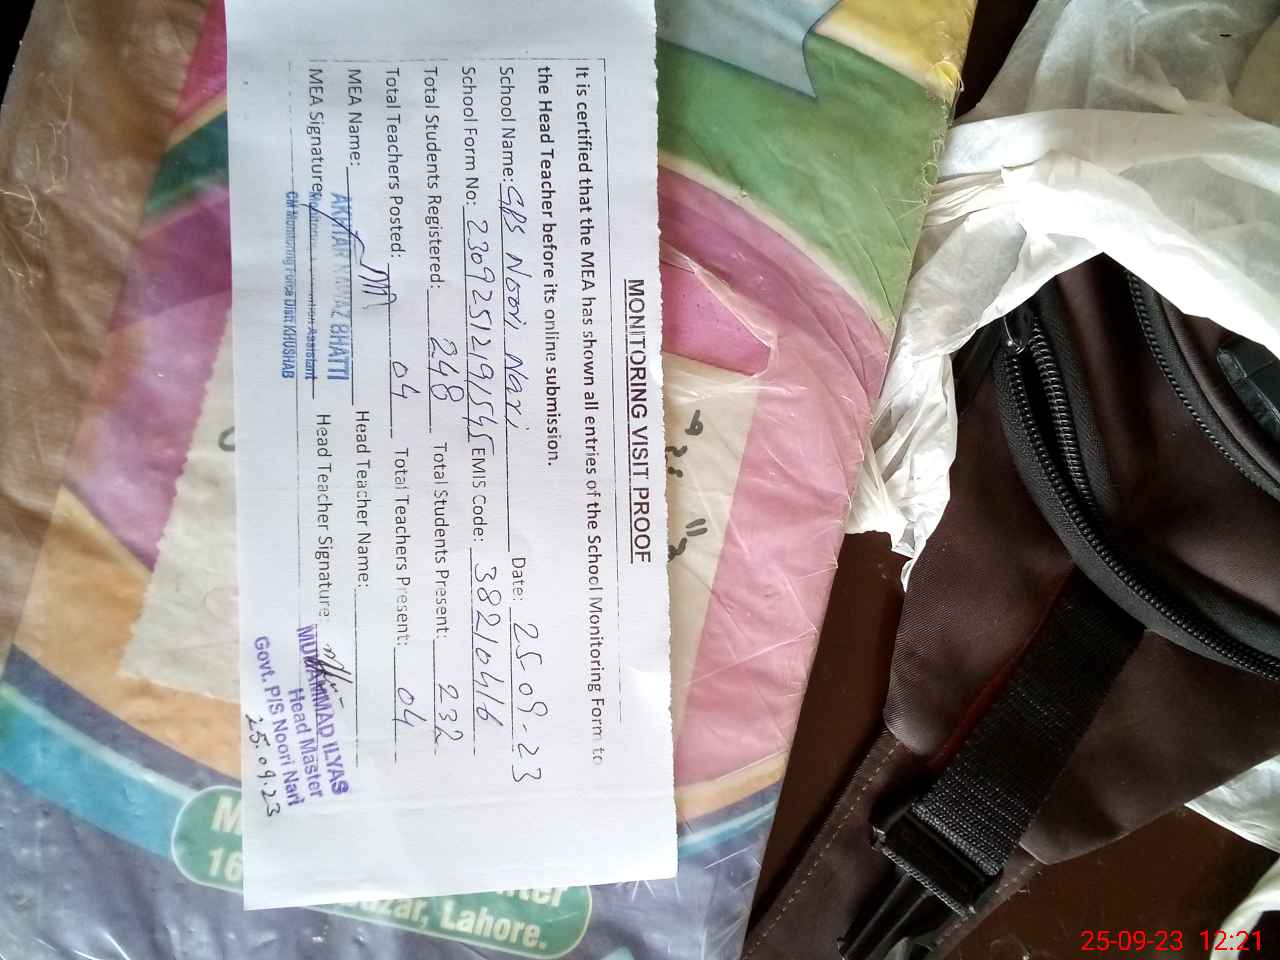 MONITORING VISIT PROOF
It is certified that the MEA has shown all entries of the School Monitoring Form to
the Head Teacher before its online submission.
School Name: GPS Noori Nari Date: 25-09-23
School Form No: 23092512191545 EMIS Code: 38210416
Total Students Registered: 248 Total Students Present: 232
Total Teachers Posted: 04 Total Teachers Present: 04
MEA Name: AKHTAR NAWAZ BHATTI Head Teacher Name:
MEA Signature: Monitoring Assistant Head Teacher Signature:
CM Monitoring Force Distt KHUSHAB
MUHAMMAD ILYAS
Head Master
Govt. P/S Noori Nari
25.09.23
16
Lahore.
25-09-23 12:21